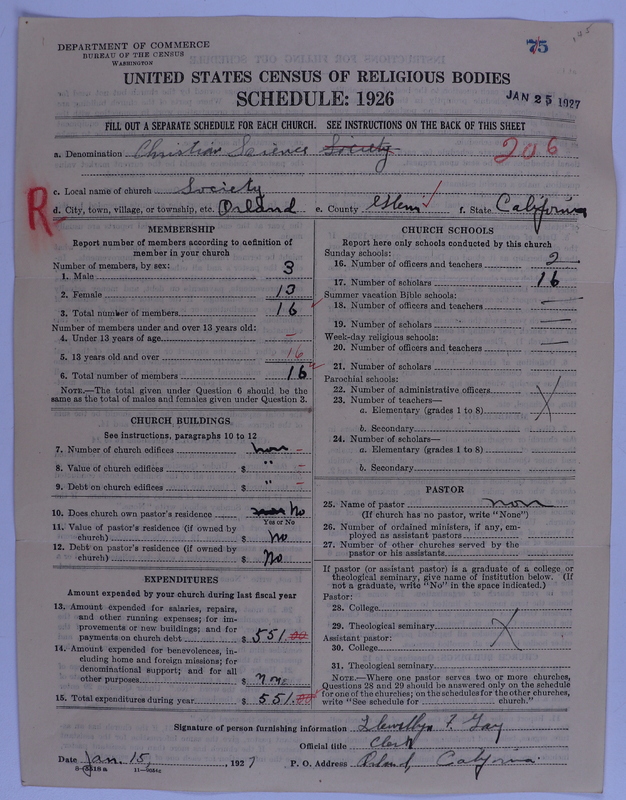 DEPARTMENT OF COMMERCE
BUREAU OF THE CENSUS
WASHINGTON
75
UNITED STATES CENSUS OF RELIGIOUS BODIES
SCHEDULE: 1926
JAN 25 1927
FILL OUT A SEPARATE SCHEDULE FOR EACH CHURCH. SEE INSTRUCTIONS ON THE BACK OF THIS SHEET
a. Denomination Christian Science Society 206
c. Local name of church Society
R
d. City, town, village, or township, etc. Orland e. County Glenn f. State California
MEMBERSHIP
Report number of members according to definition of
member in your church
Number of members, by sex:
1. Male 3
2. Female 13
3. Total number of members 16
Number of members under and over 13 years old:
4. Under 13 years of age –
5. 13 years old and over 16
6. Total number of members 16
NOTE.—The total given under Question 6 should be the
same as the total of males and females given under Question 3.
CHURCH BUILDINGS
See instructions, paragraphs 10 to 12
7. Number of church edifices non –
8. Value of church edifices $ " –
9. Debt on church edifices $ " –
10. Does church own pastor's residence No
Yes or No
11. Value of pastor's residence (if owned by
church) $ No
12. Debt on pastor's residence (if owned by
church) $ No
EXPENDITURES
Amount expended by your church during last fiscal year
13. Amount expended for salaries, repairs,
and other running expenses; for im-
provements or new buildings; and for
payments on church debt $ 551.00
14. Amount expended for benevolences, in-
cluding home and foreign missions; for
denominational support; and for all
other purposes $ None
15. Total expenditures during year $ 551.00
CHURCH SCHOOLS
Report here only schools conducted by this church
Sunday schools:
16. Number of officers and teachers 2
17. Number of scholars 16
Summer vacation Bible schools:
18. Number of officers and teachers —
19. Number of scholars —
Week-day religious schools:
20. Number of officers and teachers —
21. Number of scholars
Parochial schools:
22. Number of administrative officers
23. Number of teachers—
a. Elementary (grades 1 to 8)
b. Secondary
24. Number of scholars—
a. Elementary (grades 1 to 8)
b. Secondary
PASTOR
25. Name of pastor non
(If church has no pastor, write "None")
26. Number of ordained ministers, if any, em-
ployed as assistant pastors
27. Number of other churches served by the
pastor or his assistants
If pastor (or assistant pastor) is a graduate of a college or
theological seminary, give name of institution below. (If
not a graduate, write "No" in the space indicated.)
Pastor:
28. College
29. Theological seminary
Assistant pastor:
30. College
31. Theological seminary
NOTE.—Where one pastor serves two or more churches,
Questions 28 and 29 should be answered only on the schedule
for one of the churches; on the schedules for the other churches,
write "See schedule for church."
Signature of person furnishing information Llewellyn F. Gay
Official title Clerk
Date Jan. 15, 1927 P. O. Address Orland, California.
8-5518a